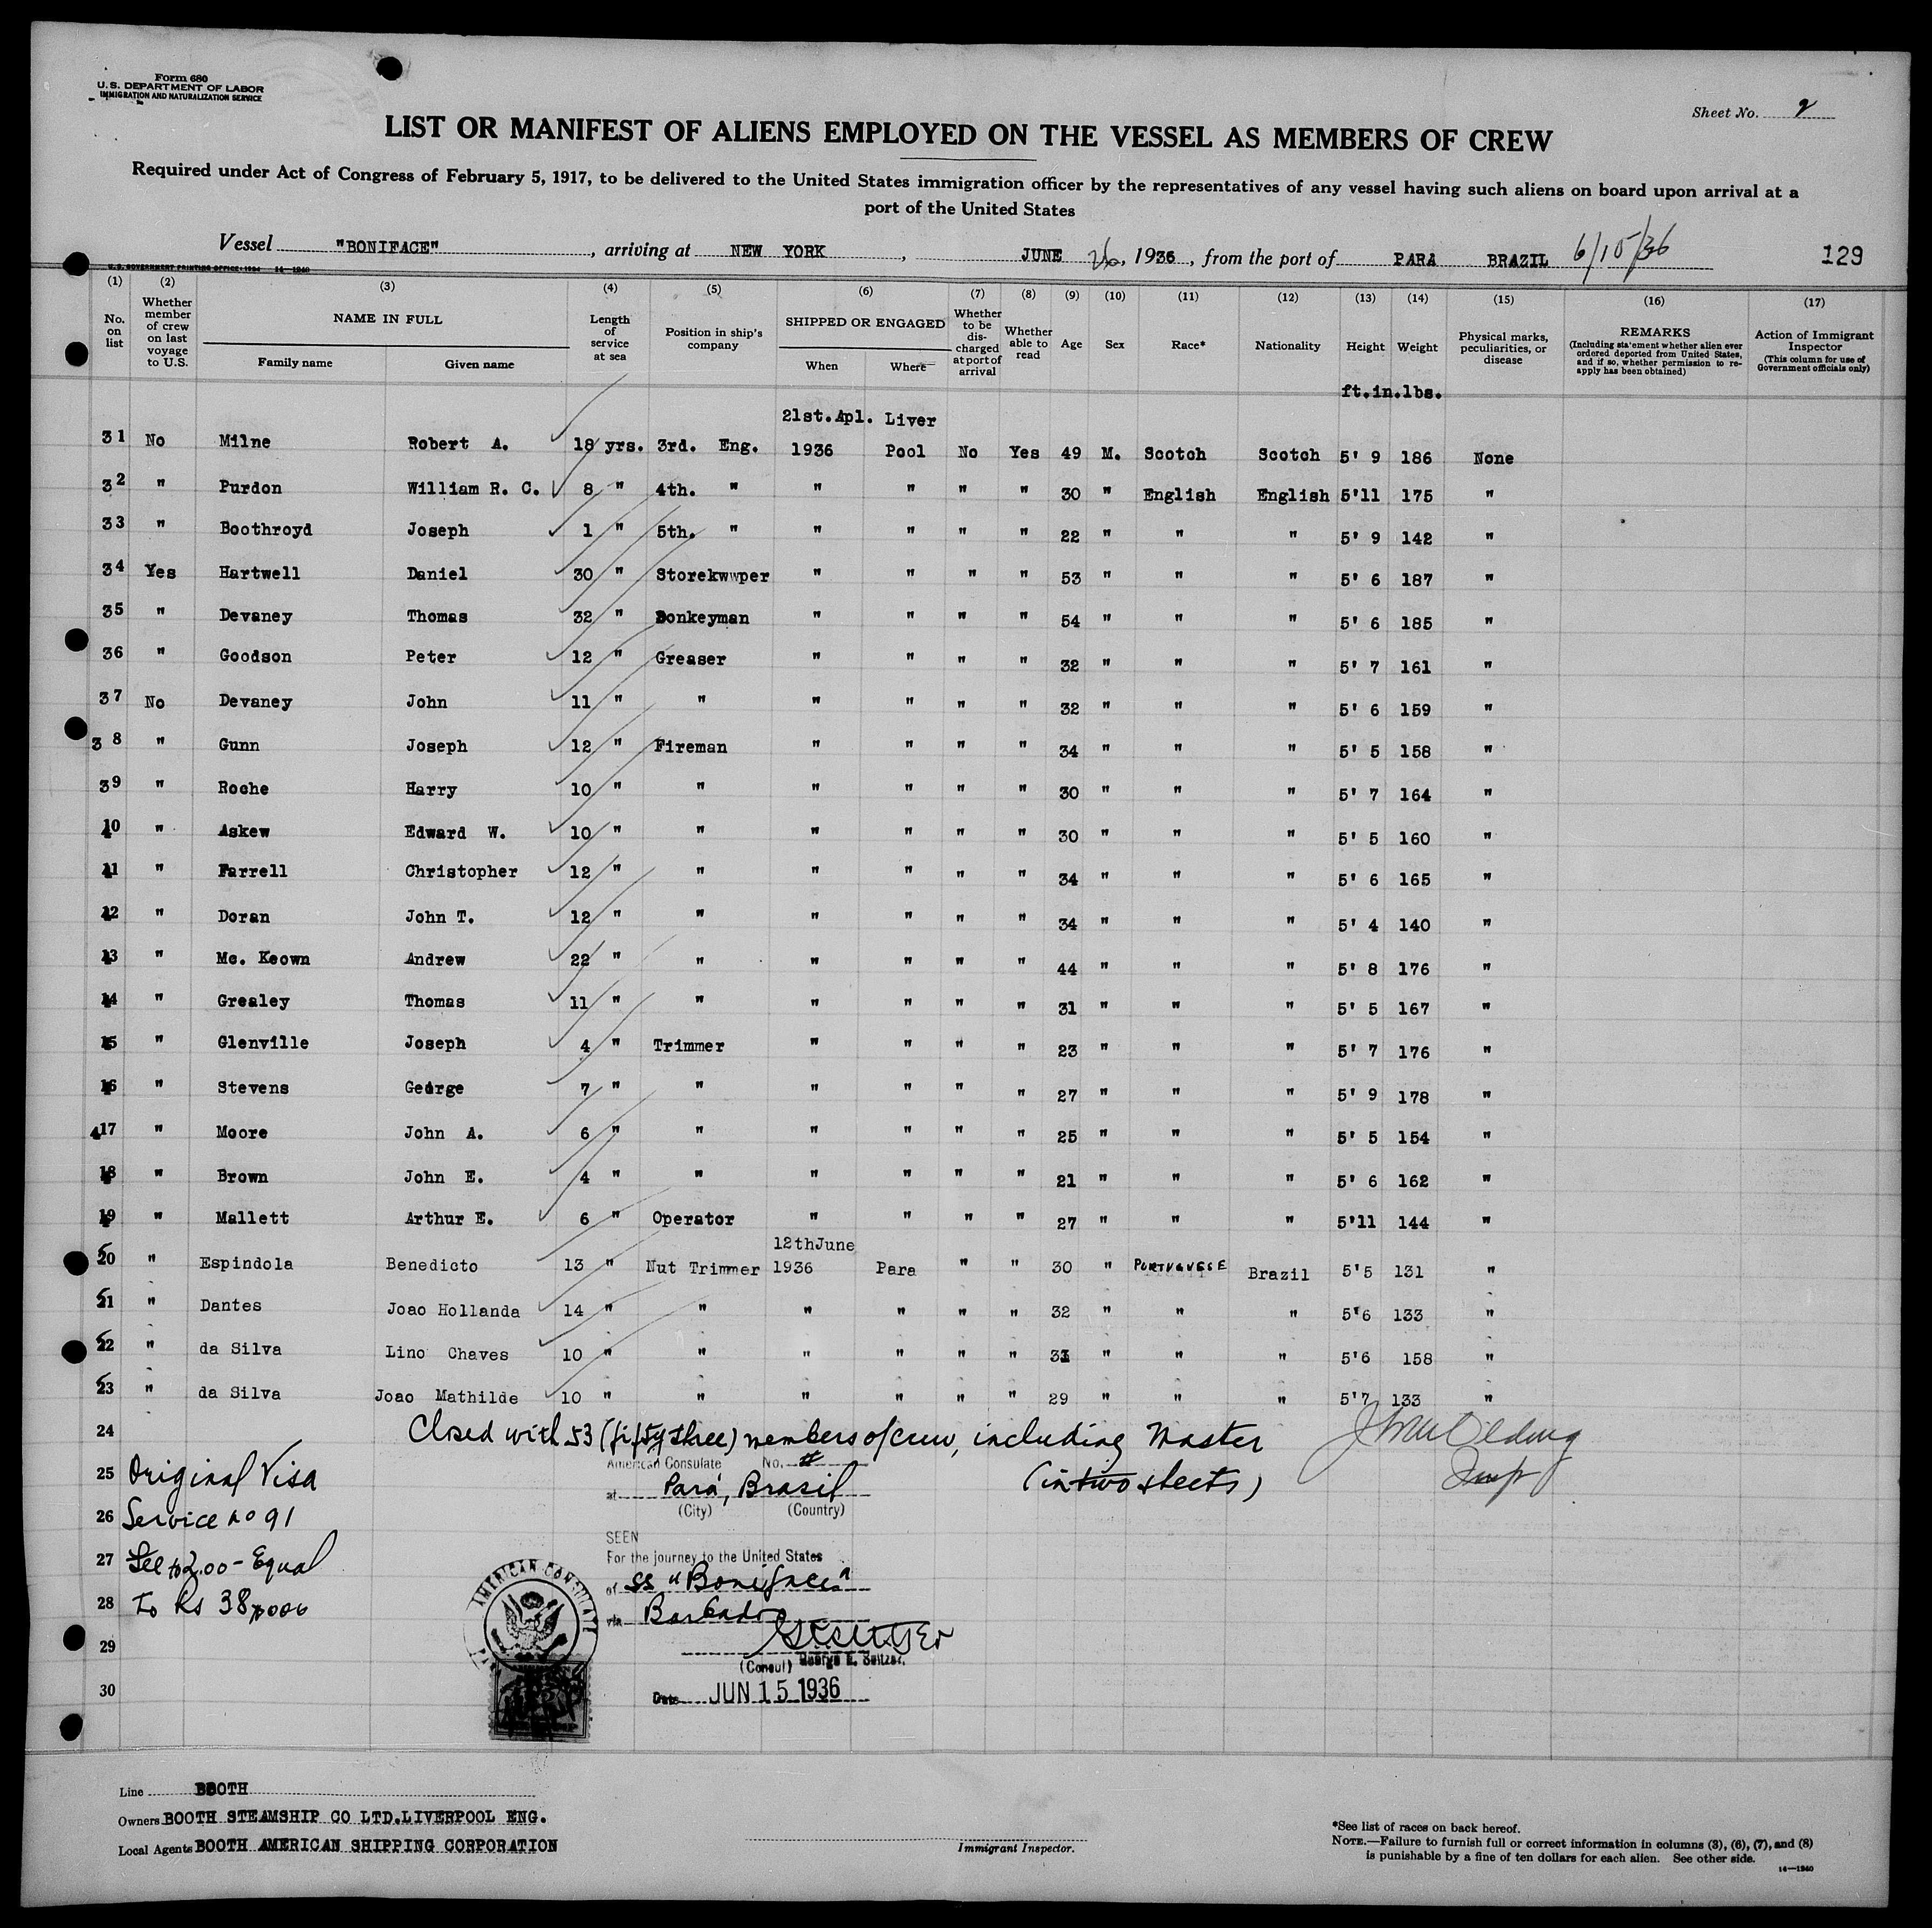 Form 680
U.S. DEPARTMENT OF LABOR
IMMIGRATION AND NATURALIZATION SERVICE
Sheet No. 2
LIST OR MANIFEST OF ALIENS EMPLOYED ON THE VESSEL AS MEMBERS OF CREW
Required under Act of Congress of February 5, 1917, to be delivered to the United States immigration officer by the representatives of any vessel having such aliens on board upon arrival at a
port of the United States
Vessel "BONIFACE", arriving at NEW YORK, JUNE 26, 1936, from the port of PARA BRAZIL 6/15/36 129
U.S. GOVERNMENT PRINTING OFFICE: 1934 14—1240
(1) No. on list
(2) Whether member of crew on last voyage to U.S.
(3) NAME IN FULL Family name Given name
(4) Length of service at sea
(5) Position in ship's company
(6) SHIPPED OR ENGAGED When Where
(7) Whether to be discharged at port of arrival
(8) Whether able to read
(9) Age
(10) Sex
(11) Race*
(12) Nationality
(13) Height
(14) Weight
(15) Physical marks, peculiarities, or disease
(16) REMARKS (Including statement whether alien ever ordered deported from United States, and if so, whether permission to re-apply has been obtained)
(17) Action of Immigrant Inspector (This column for use of Government officials only)
ft.in.lbs.
21st.Apl. Liver
31 No Milne Robert A. 18 yrs. 3rd. Eng. 1936 Pool No Yes 49 M. Scotch Scotch 5' 9 186 None
32 " Purdon William R. C. 8 " 4th. " " " " " 30 " English English 5'11 175 "
33 " Boothroyd Joseph 1 " 5th. " " " " " 22 " " " 5' 9 142 "
34 Yes Hartwell Daniel 30 " Storekwwper " " " " 53 " " " 5' 6 187 "
35 " Devaney Thomas 32 " Donkeyman " " " " 54 " " " 5' 6 185 "
36 " Goodson Peter 12 " Greaser " " " " 32 " " " 5' 7 161 "
37 No Devaney John 11 " " " " " " 32 " " " 5' 6 159 "
38 " Gunn Joseph 12 " Fireman " " " " 34 " " " 5' 5 158 "
39 " Roche Harry 10 " " " " " " 30 " " " 5' 7 164 "
40 " Askew Edward W. 10 " " " " " " 30 " " " 5' 5 160 "
41 " Farrell Christopher 12 " " " " " " 34 " " " 5' 6 165 "
42 " Doran John T. 12 " " " " " " 34 " " " 5' 4 140 "
43 " Mc. Keown Andrew 22 " " " " " " 44 " " " 5' 8 176 "
44 " Grealey Thomas 11 " " " " " " 31 " " " 5' 5 167 "
45 " Glenville Joseph 4 " Trimmer " " " " 23 " " " 5' 7 176 "
46 " Stevens George 7 " " " " " " 27 " " " 5' 9 178 "
417 " Moore John A. 6 " " " " " " 25 " " " 5' 5 154 "
48 " Brown John E. 4 " " " " " " 21 " " " 5' 6 162 "
49 " Mallett Arthur E. 6 " Operator " " " " 27 " " " 5'11 144 "
12thJune
50 " Espindola Benedicto 13 " Nut Trimmer 1936 Para " " 30 " PORTUGUESE Brazil 5'5 131 "
51 " Dantes Joao Hollanda 14 " " " " " " 32 " " " 5'6 133 "
52 " da Silva Lino Chaves 10 " " " " " " 33 " " " 5'6 158 "
53 " da Silva Joao Mathilde 10 " " " " " " 29 " " " 5'7 133 "
24 Closed with 53 (fifty three) members of crew, including Master
American Consulate No. #
25 Original Visa at Pará, Brasil (in two sheets) Insp
(City) (Country)
26 Service no 91
SEEN
27 Fee $2.00 - Equal For the journey to the United States
of SS "Boniface"
28 To Rs 38$000 via Barbados
29
(Consul) George E. Seltzer.
30 Date JUN 15 1936
AMERICAN CONSULATE
Line BOOTH
Owners BOOTH STEAMSHIP CO LTD.LIVERPOOL ENG.
Local Agents BOOTH AMERICAN SHIPPING CORPORATION
Immigrant Inspector.
*See list of races on back hereof.
NOTE.—Failure to furnish full or correct information in columns (3), (6), (7), and (8)
is punishable by a fine of ten dollars for each alien. See other side.
14—1240